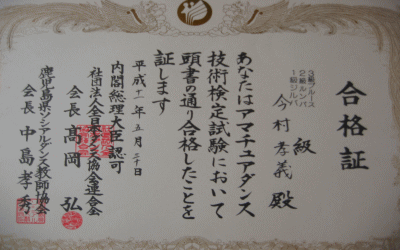 合格証
3級ブルース
2級ルンバ
1級ジルバ
級
今村孝義 殿
あなたはアマチュアダンス
技術検定試験において
頭書の通り合格したことを
証します
平成十一年五月三十日
内閣総理大臣認可
社団法人全日本ダンス協会連合会
会長 高岡 弘
鹿児島県ソシアルダンス教師協会
会長 中島孝秀